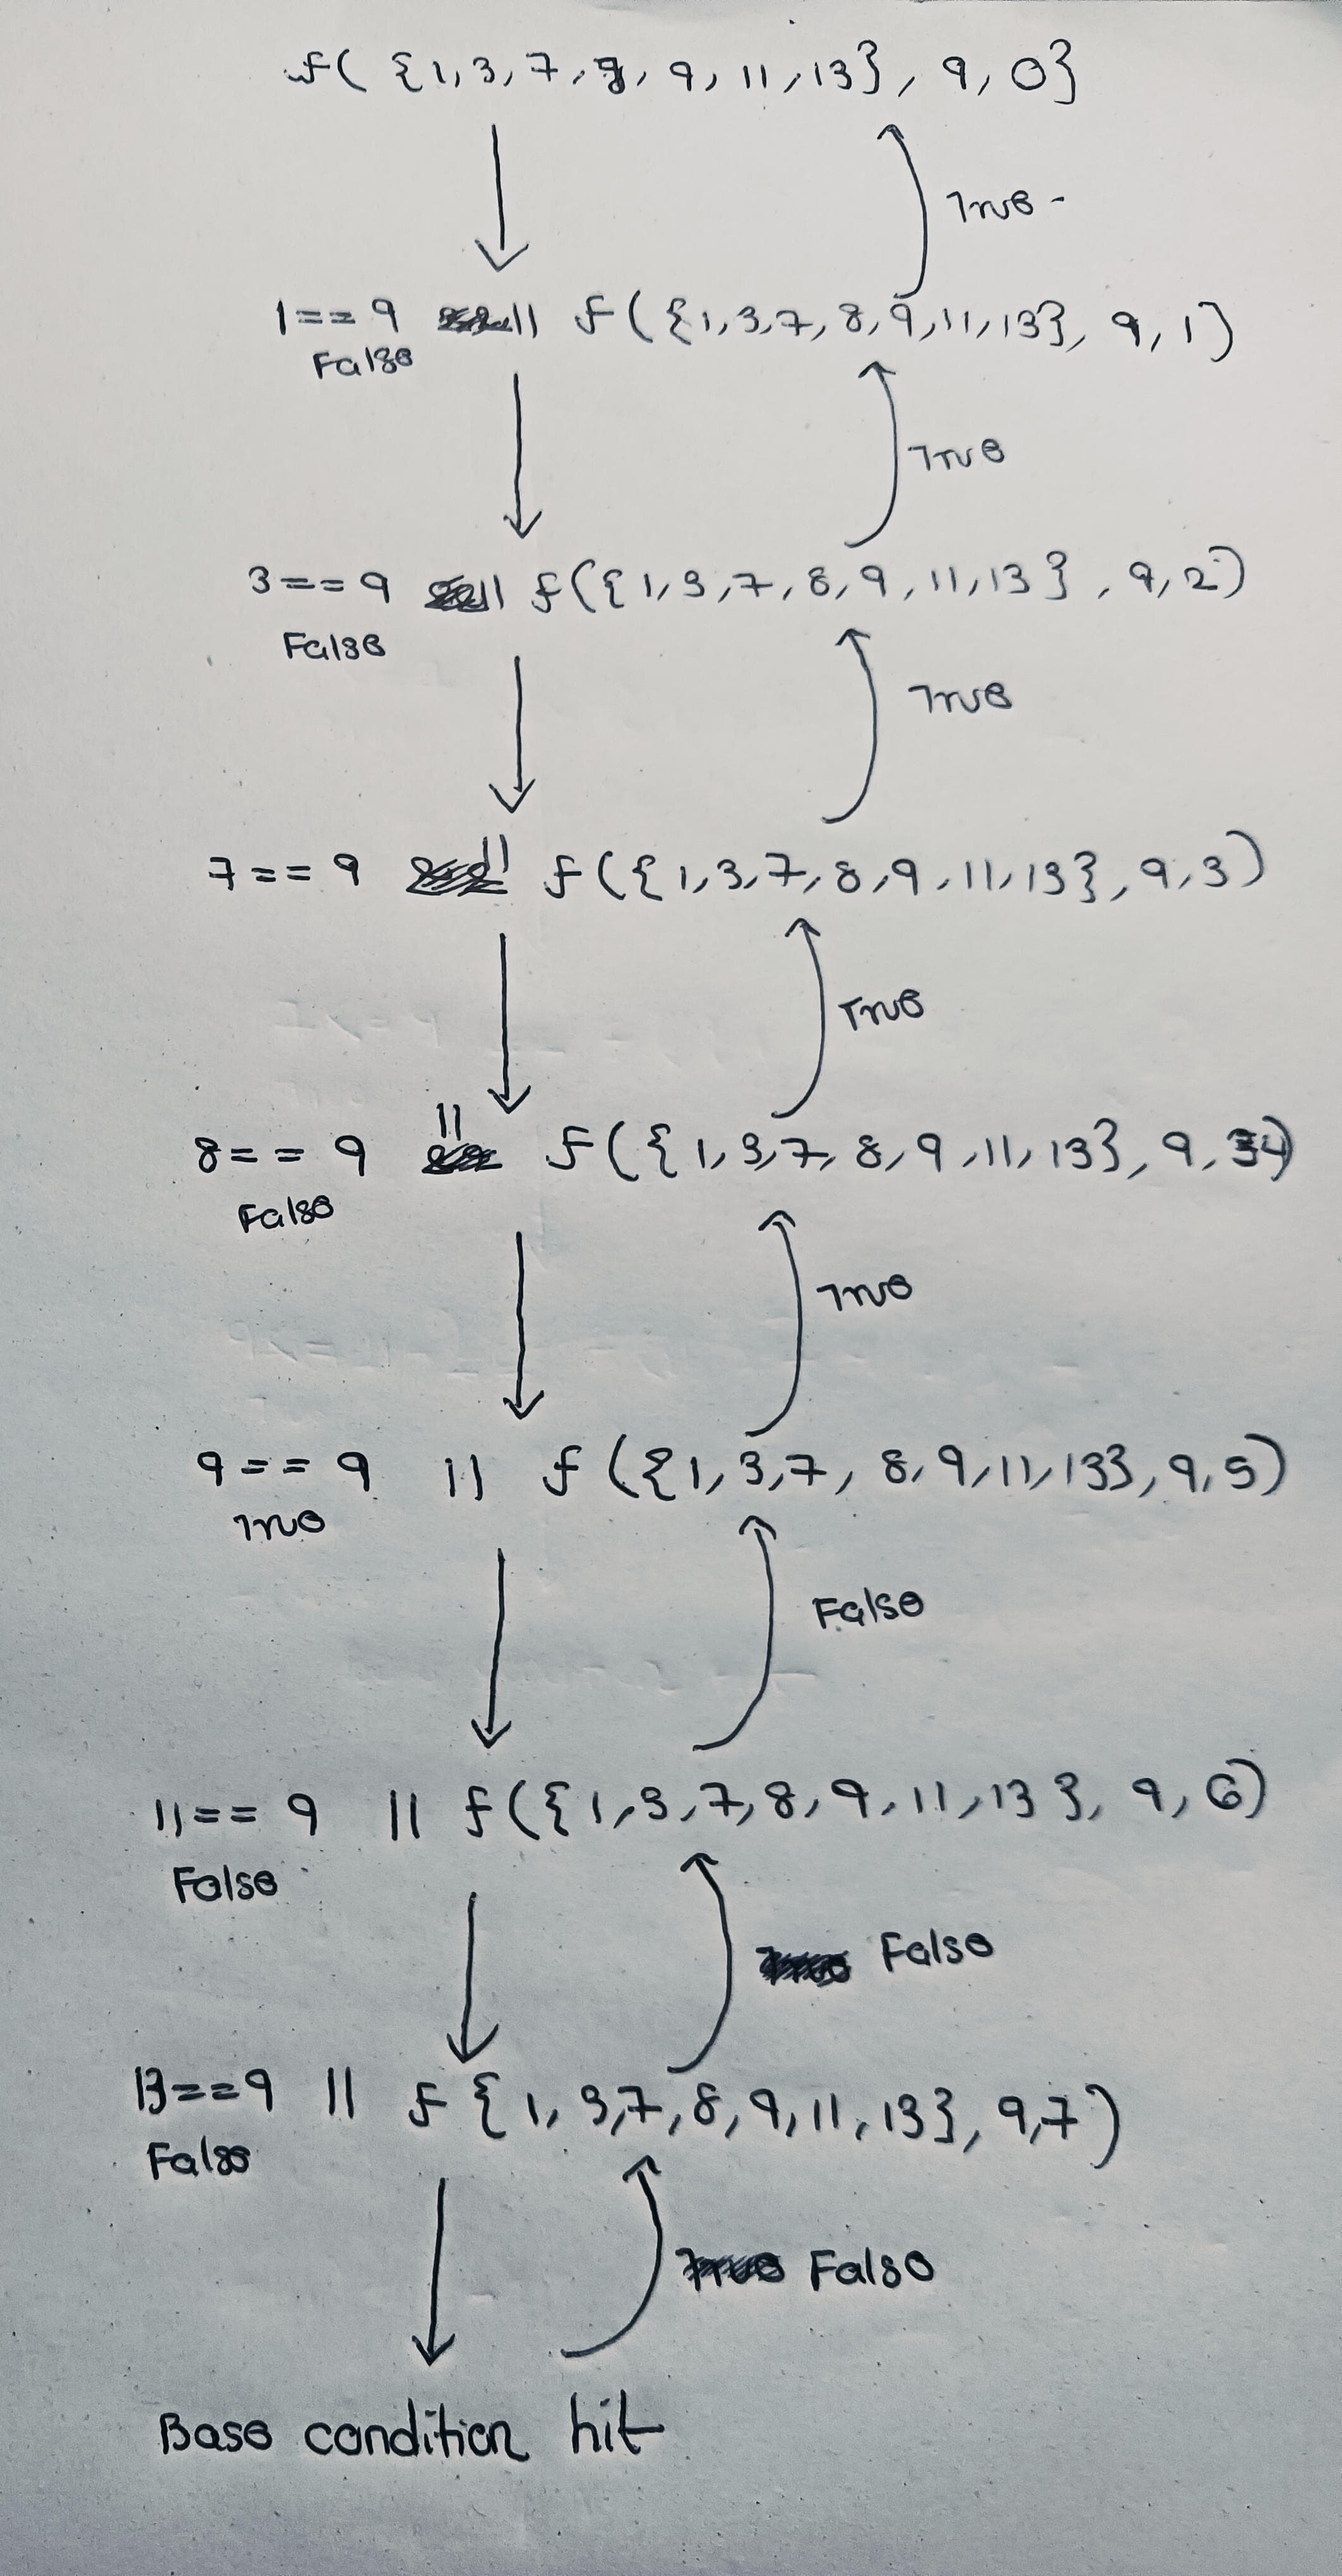 f( {1,3,7,8,9,11,13}, 9,0}
True
1==9 || f({1,3,7,8,9,11,13}, 9,1)
False
True
3==9 || f({1,3,7,8,9,11,13}, 9,2)
False
True
7==9 || f({1,3,7,8,9,11,13}, 9,3)
True
8==9 || f({1,3,7,8,9,11,13}, 9,4)
False
True
9==9 || f({1,3,7,8,9,11,13}, 9,5)
True
False
11==9 || f({1,3,7,8,9,11,13}, 9,6)
False
False
13==9 || f{1,3,7,8,9,11,13}, 9,7)
False
False
Base condition hit